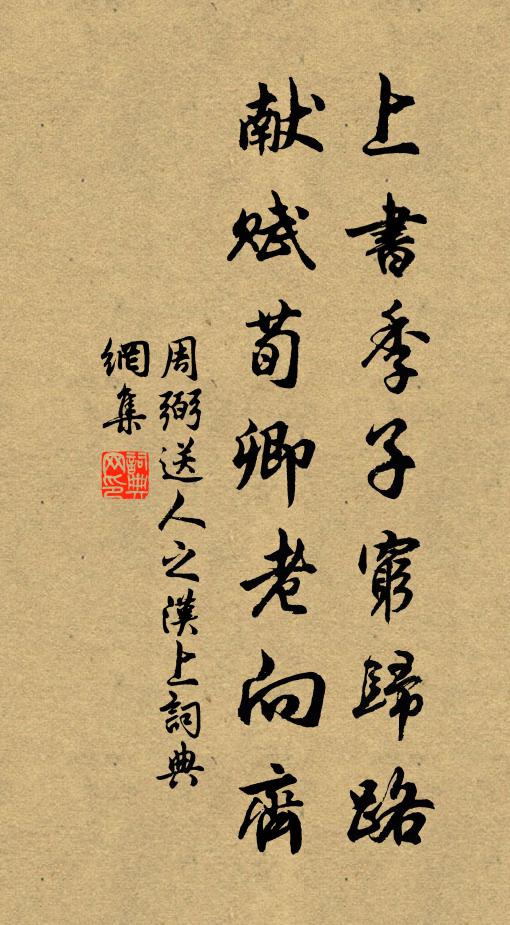 上書季子窮歸路
献赋荀卿老向齊
周弼送人之漢上詞典
網集
詞典网印